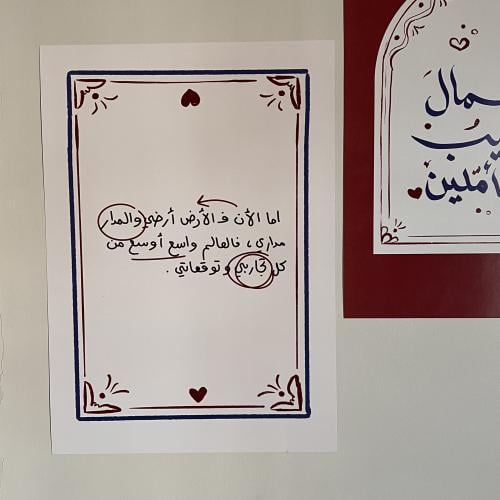 اما الأن فـ الأرض أرضي والمدار
مداري ، فالعالم واسع أوسع من
كل تجاربي و توقعاتي .